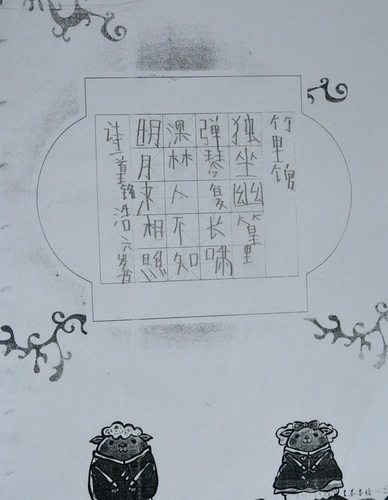 竹里馆
独坐幽篁里
弹琴复长啸
深林人不知
明月来相照
诗一浩六岁书